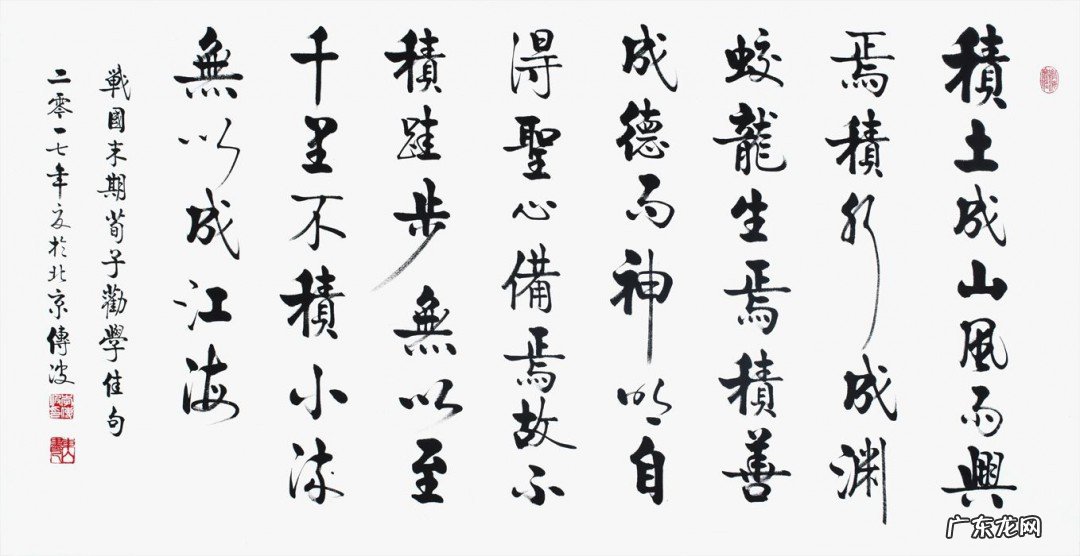 積土成山風雨興
焉積水成淵
蛟龍生焉積善
成德而神明自
得聖心備焉故不
積跬步無以至
千里不積小流
無以成江海
戰國末期荀子勸學佳句
二零一七年夏於北京傳波
广东龙网